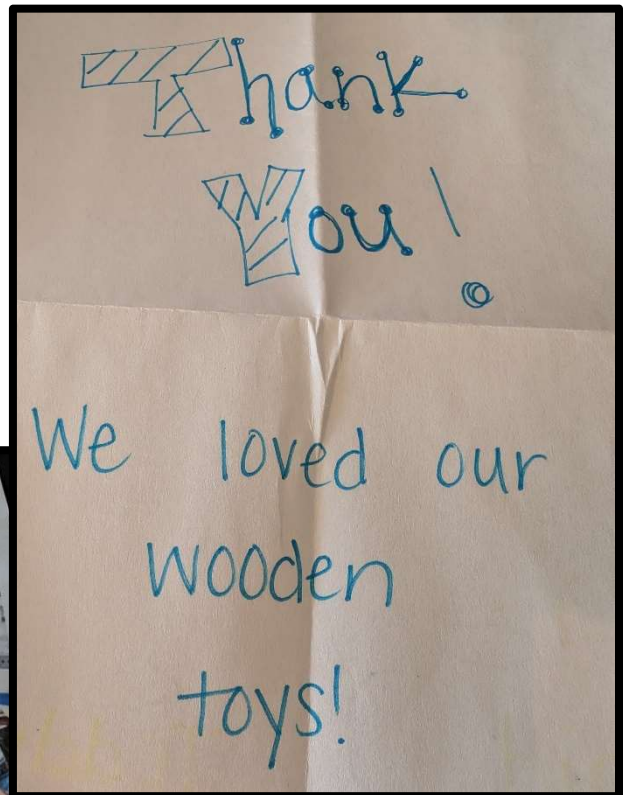 Thank
You!
We loved our
wooden
toys!